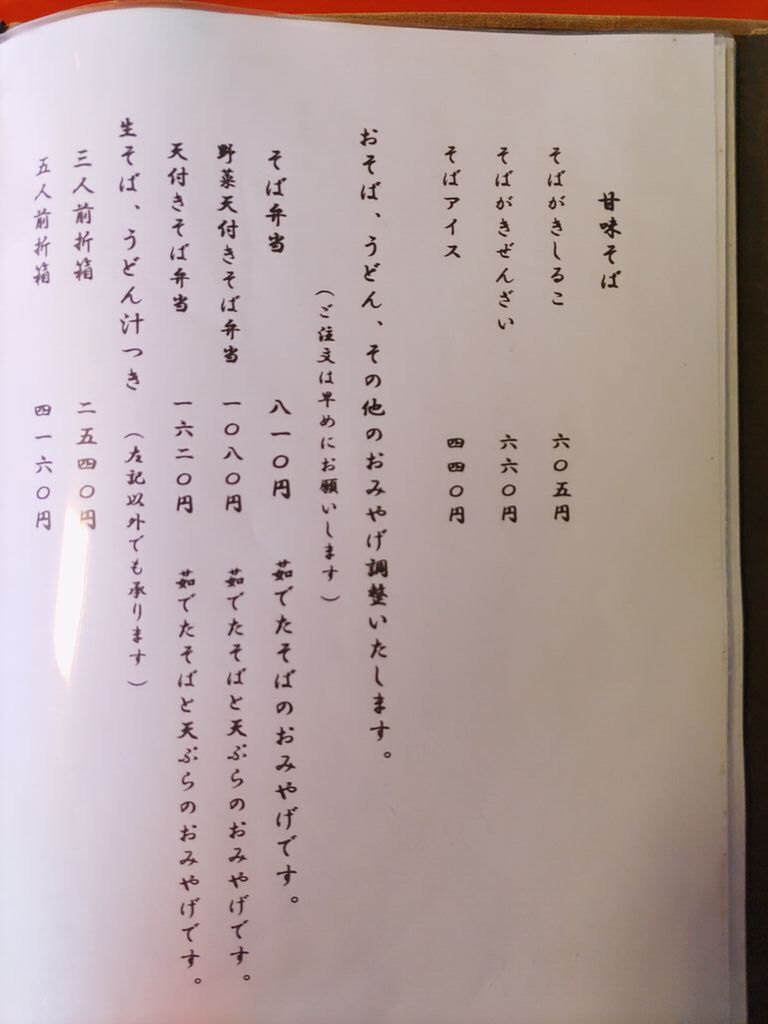 甘味そば
そばがきしるこ 六〇五円
そばがきぜんざい 六六〇円
そばアイス 四四〇円
おそば、うどん、その他のおみやげ調整いたします。
（ご注文は早めにお願いします）
そば弁当 八一〇円 茹でたそばのおみやげです。
野菜天付きそば弁当 一〇八〇円 茹でたそばと天ぷらのおみやげです。
天付きそば弁当 一六二〇円 茹でたそばと天ぷらのおみやげです。
生そば、うどん汁つき （左記以外でも承ります）
三人前折箱 二五四〇円
五人前折箱 四一六〇円